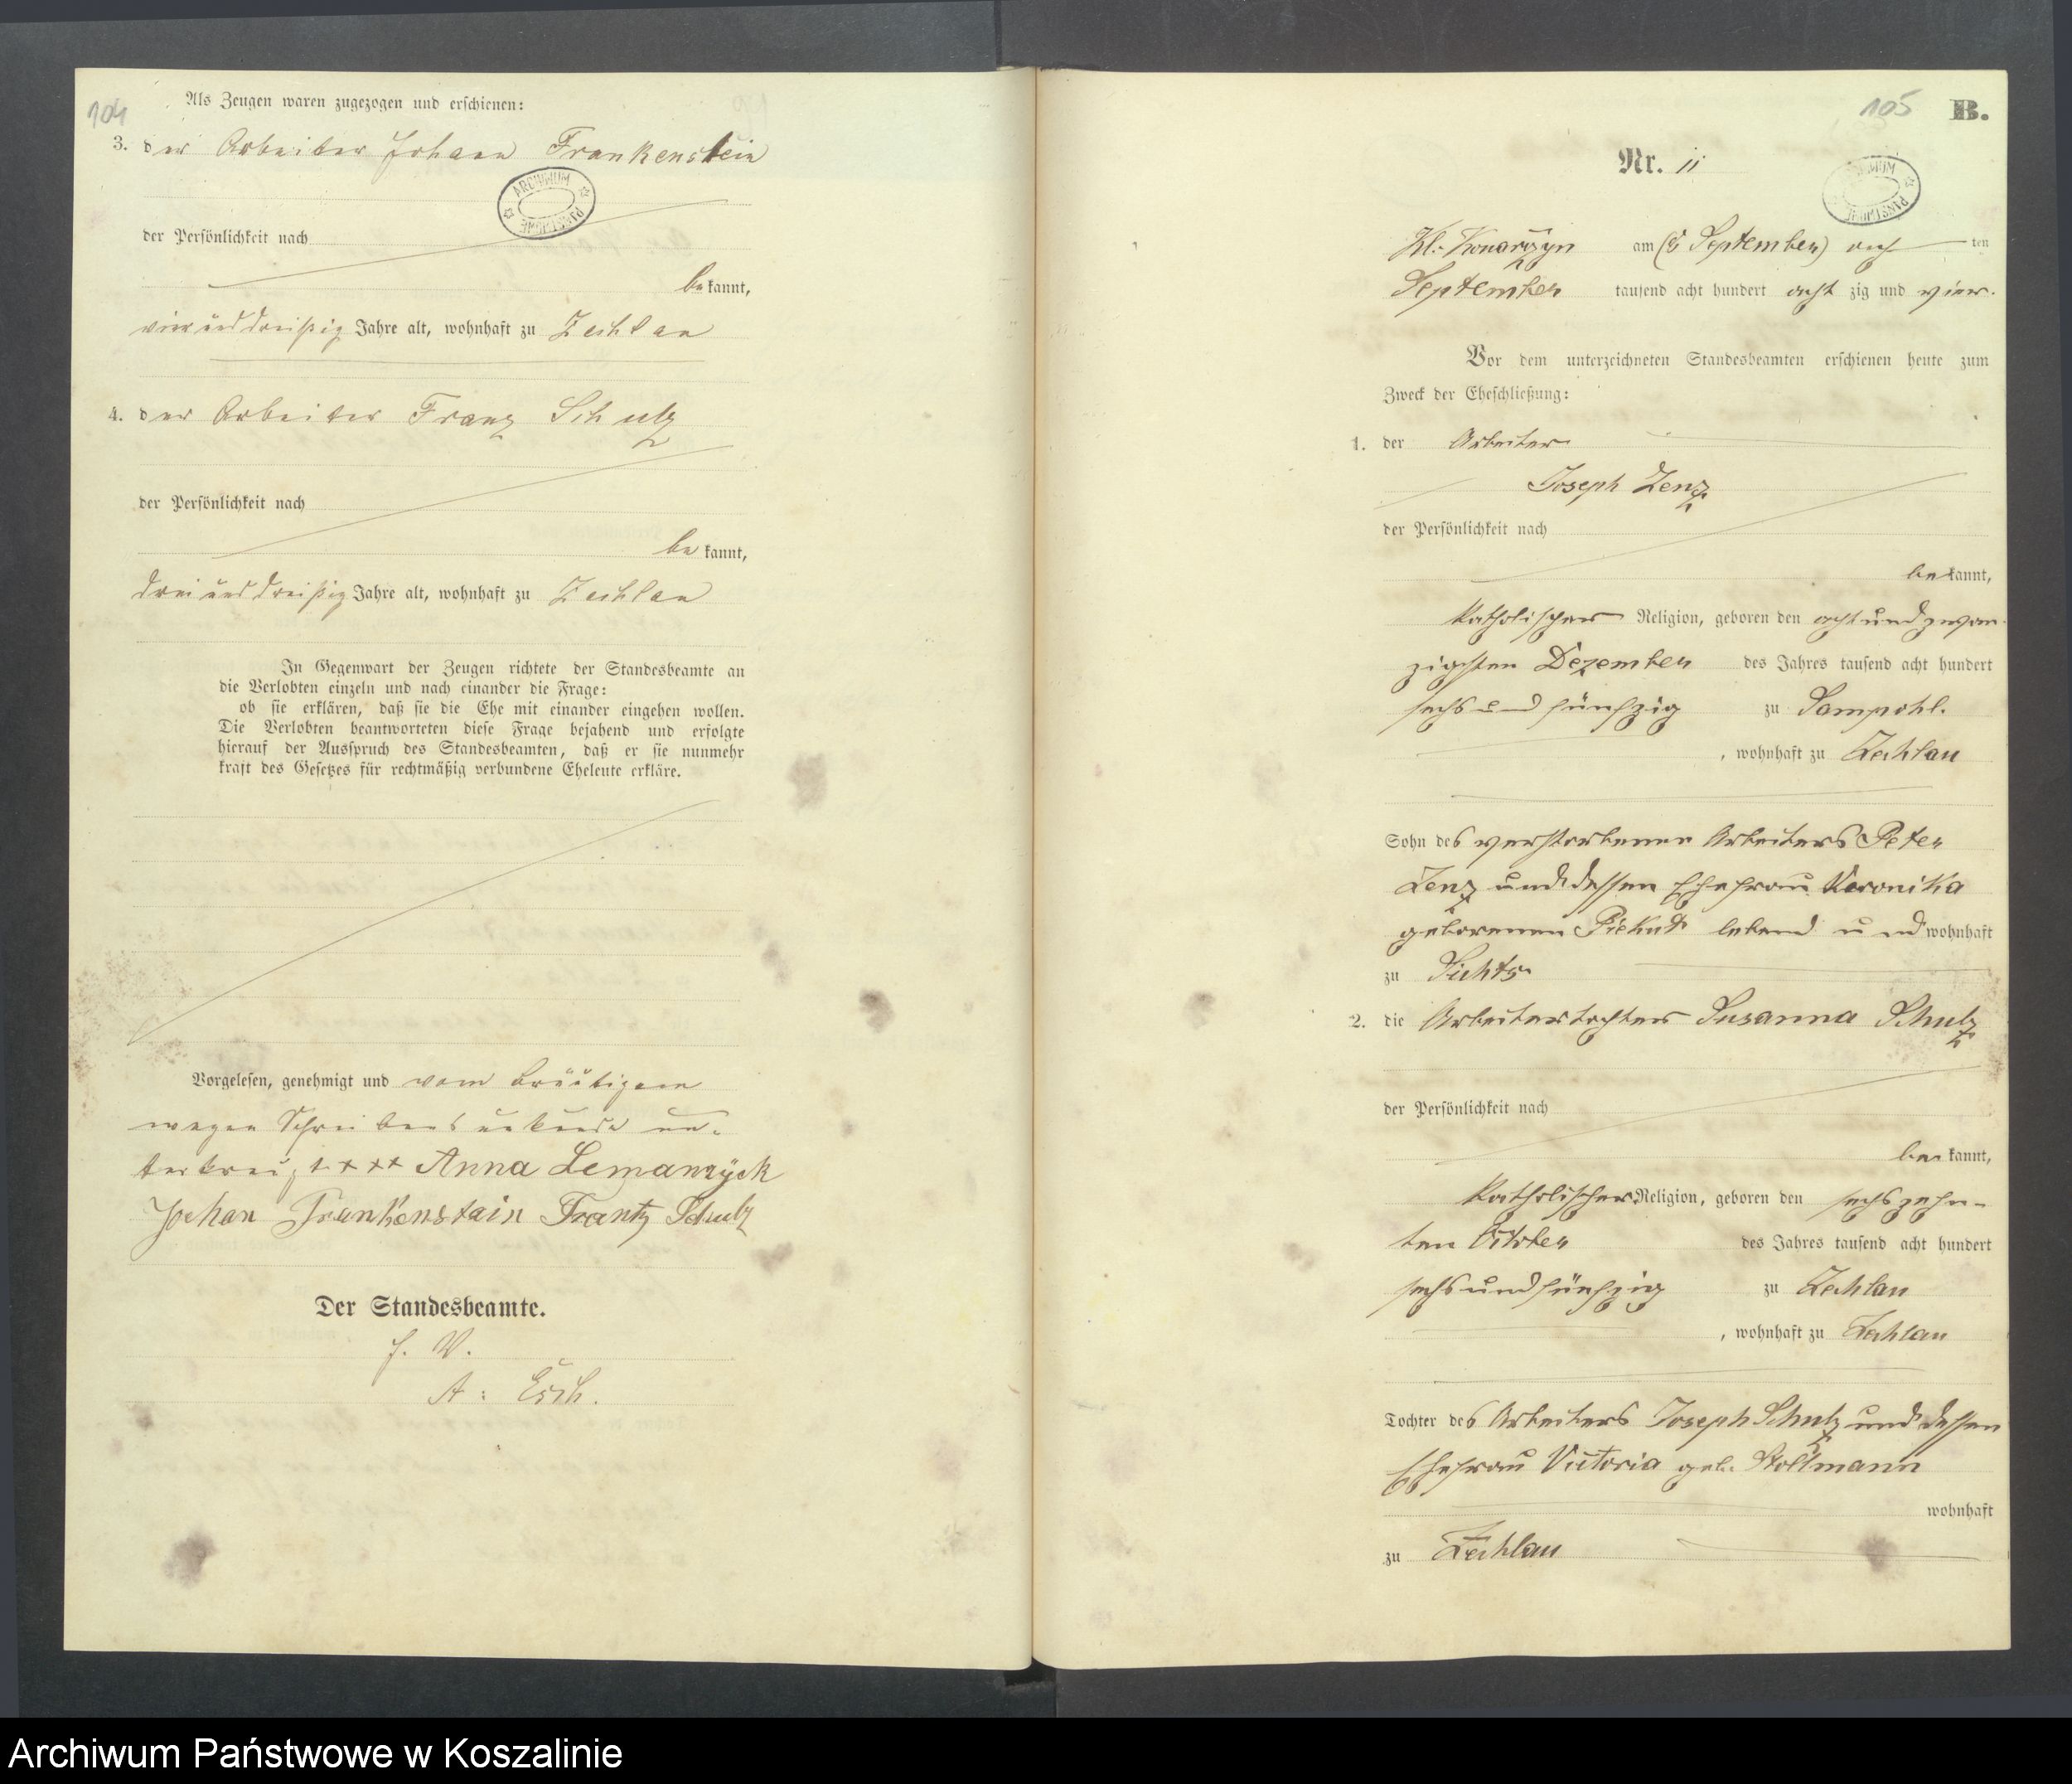 104
Als Zeugen waren zugezogen und erschienen:
3. der Arbeiter Johann Frankenstein
ARCHIWUM PAŃSTWOWE
der Persönlichkeit nach
bekannt,
vierunddreißig Jahre alt, wohnhaft zu Zechlau
4. der Arbeiter Franz Schulz
der Persönlichkeit nach
bekannt,
dreiunddreißig Jahre alt, wohnhaft zu Zechlau
In Gegenwart der Zeugen richtete der Standesbeamte an
die Verlobten einzeln und nach einander die Frage:
ob sie erklären, daß sie die Ehe mit einander eingehen wollen.
Die Verlobten beantworteten diese Frage bejahend und erfolgte
hierauf der Ausspruch des Standesbeamten, daß er sie nunmehr
kraft des Gesetzes für rechtmäßig verbundene Eheleute erkläre.
Vorgelesen, genehmigt und vom Bräutigam
wegen Schreibensunkunde un-
terkreuzt +++ Anna Lemanzÿck
Johan Frankenstain Frantz Schulz
Der Standesbeamte.
J. V.
A. Esch.
105 B.
Nr. 11
ARCHIWUM PAŃSTWOWE
Kl: Konarczyn am (8 September) acht ten
September tausend acht hundert acht zig und vier.
Vor dem unterzeichneten Standesbeamten erschienen heute zum
Zweck der Eheschließung:
1. der Arbeiter
Joseph Lenz
der Persönlichkeit nach
bekannt,
katholischer Religion, geboren den achtundzwan-
zigsten Dezember des Jahres tausend acht hundert
sechs und fünfzig zu Sampohl.
, wohnhaft zu Zechlau
Sohn des verstorbenen Arbeiters Peter
Lenz und dessen Ehefrau Veronika
geborenen Piekut lebend und wohnhaft
zu Sichts
2. die Arbeitertochter Susanna Schulz
der Persönlichkeit nach
bekannt,
katholischer Religion, geboren den sechszehn-
ten October des Jahres tausend acht hundert
sechsundfünfzig zu Zechlau
, wohnhaft zu Zechlau
Tochter des Arbeiters Joseph Schulz und dessen
Ehefrau Victoria geb. Stoltmann
wohnhaft
zu Zechlau
Archiwum Państwowe w Koszalinie